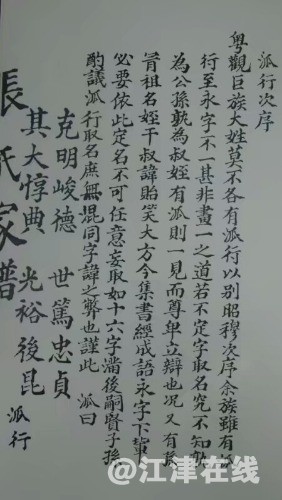 派行次序
粵觀巨族大姓莫不各有派行以别昭穆次序余族雖有
行至永字不一甚非畫一之道若不定字取名究不知孰
為公孫孰為叔姪有派則一見而尊卑立辯也况又有
祖名姪干叔諱貽笑大方今集書經成語永字下輩
必要依此定名不可任意妄取如十六字滿後嗣賢子孫
酌議派行取名庶無混同字諱之弊也謹此 派曰
克明峻德 世篤忠貞
其大惇典 光裕後昆 派行
張氏家譜
@江津在线